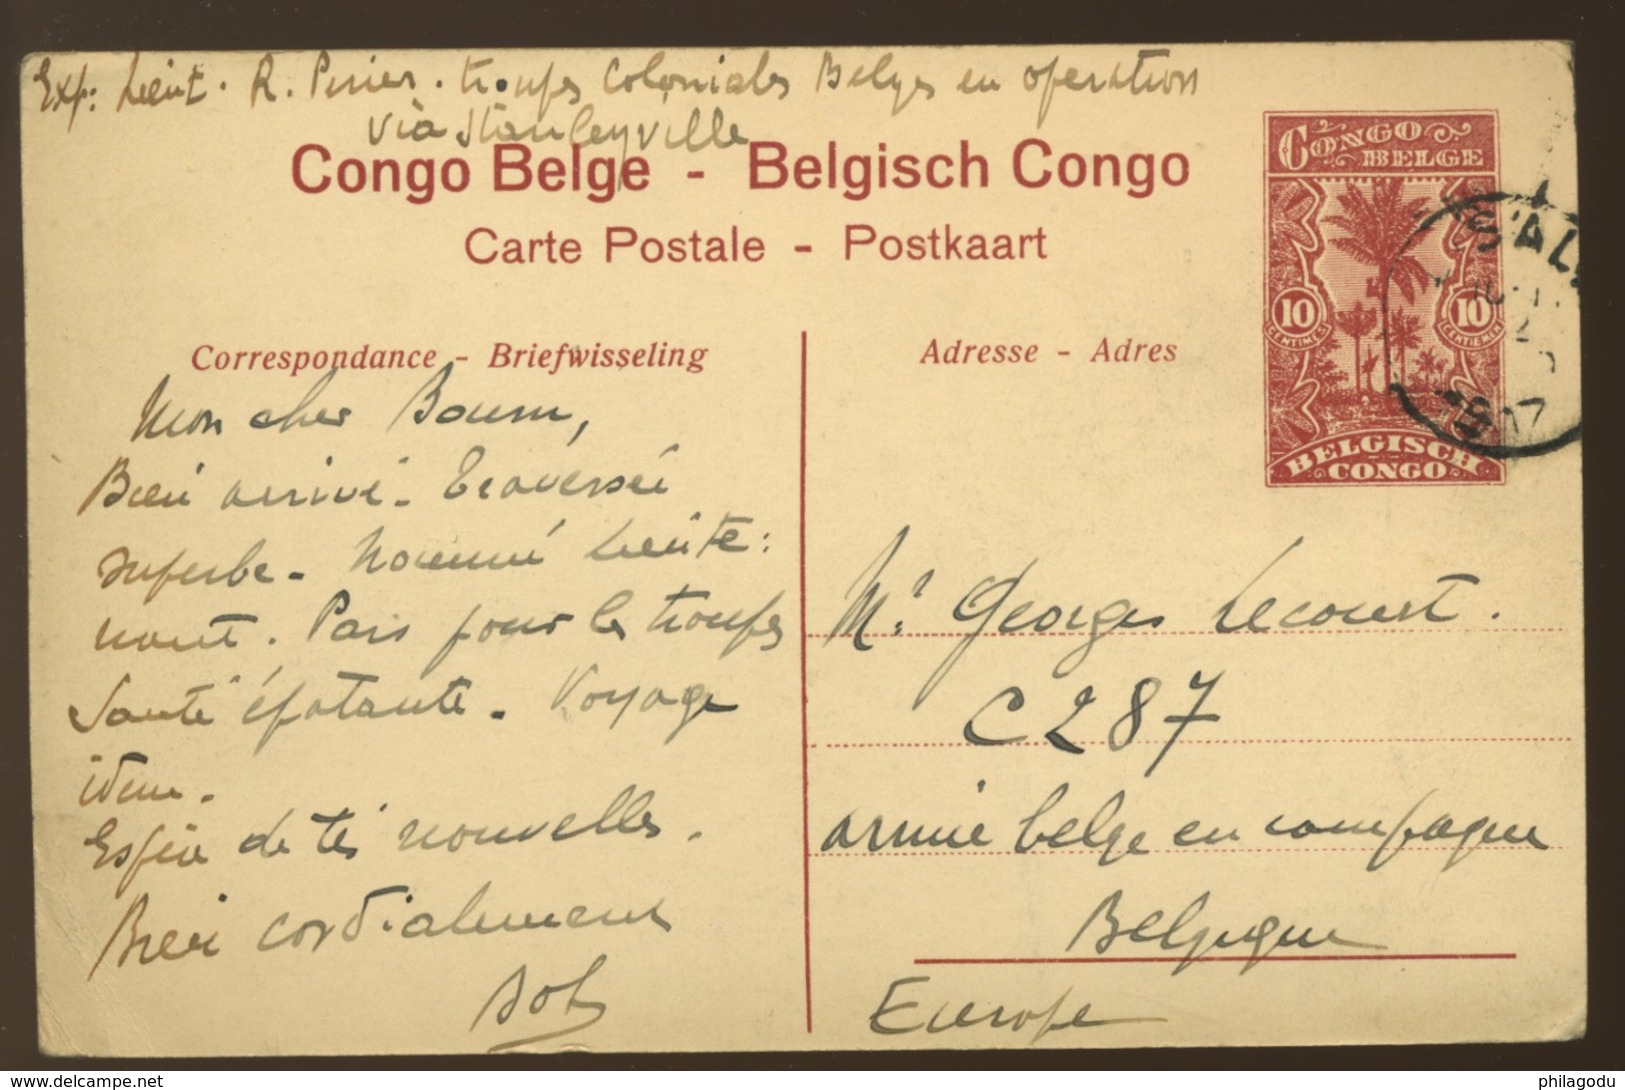 Exp: Lieut. R. Perier. troupes Coloniales Belges en operation
via Stanleyville
Congo Belge - Belgisch Congo
Carte Postale - Postkaart
CONGO
BELGE
10
CENTIMES
10
CENTIEMEN
BELGISCH
CONGO
17
Correspondance - Briefwisseling
Mon cher
Bien arrivé. Traversée
superbe. Nommé Lieute:
nant. Pars pour les troupes
Santé épatante. Voyage
idem.
Espère de tes nouvelles.
Bien cordialement
Adresse - Adres
Mr. Georges Lecourt.
C 287
armée belge en campagne
Belgique
Europe
delcampe.net
philagodu